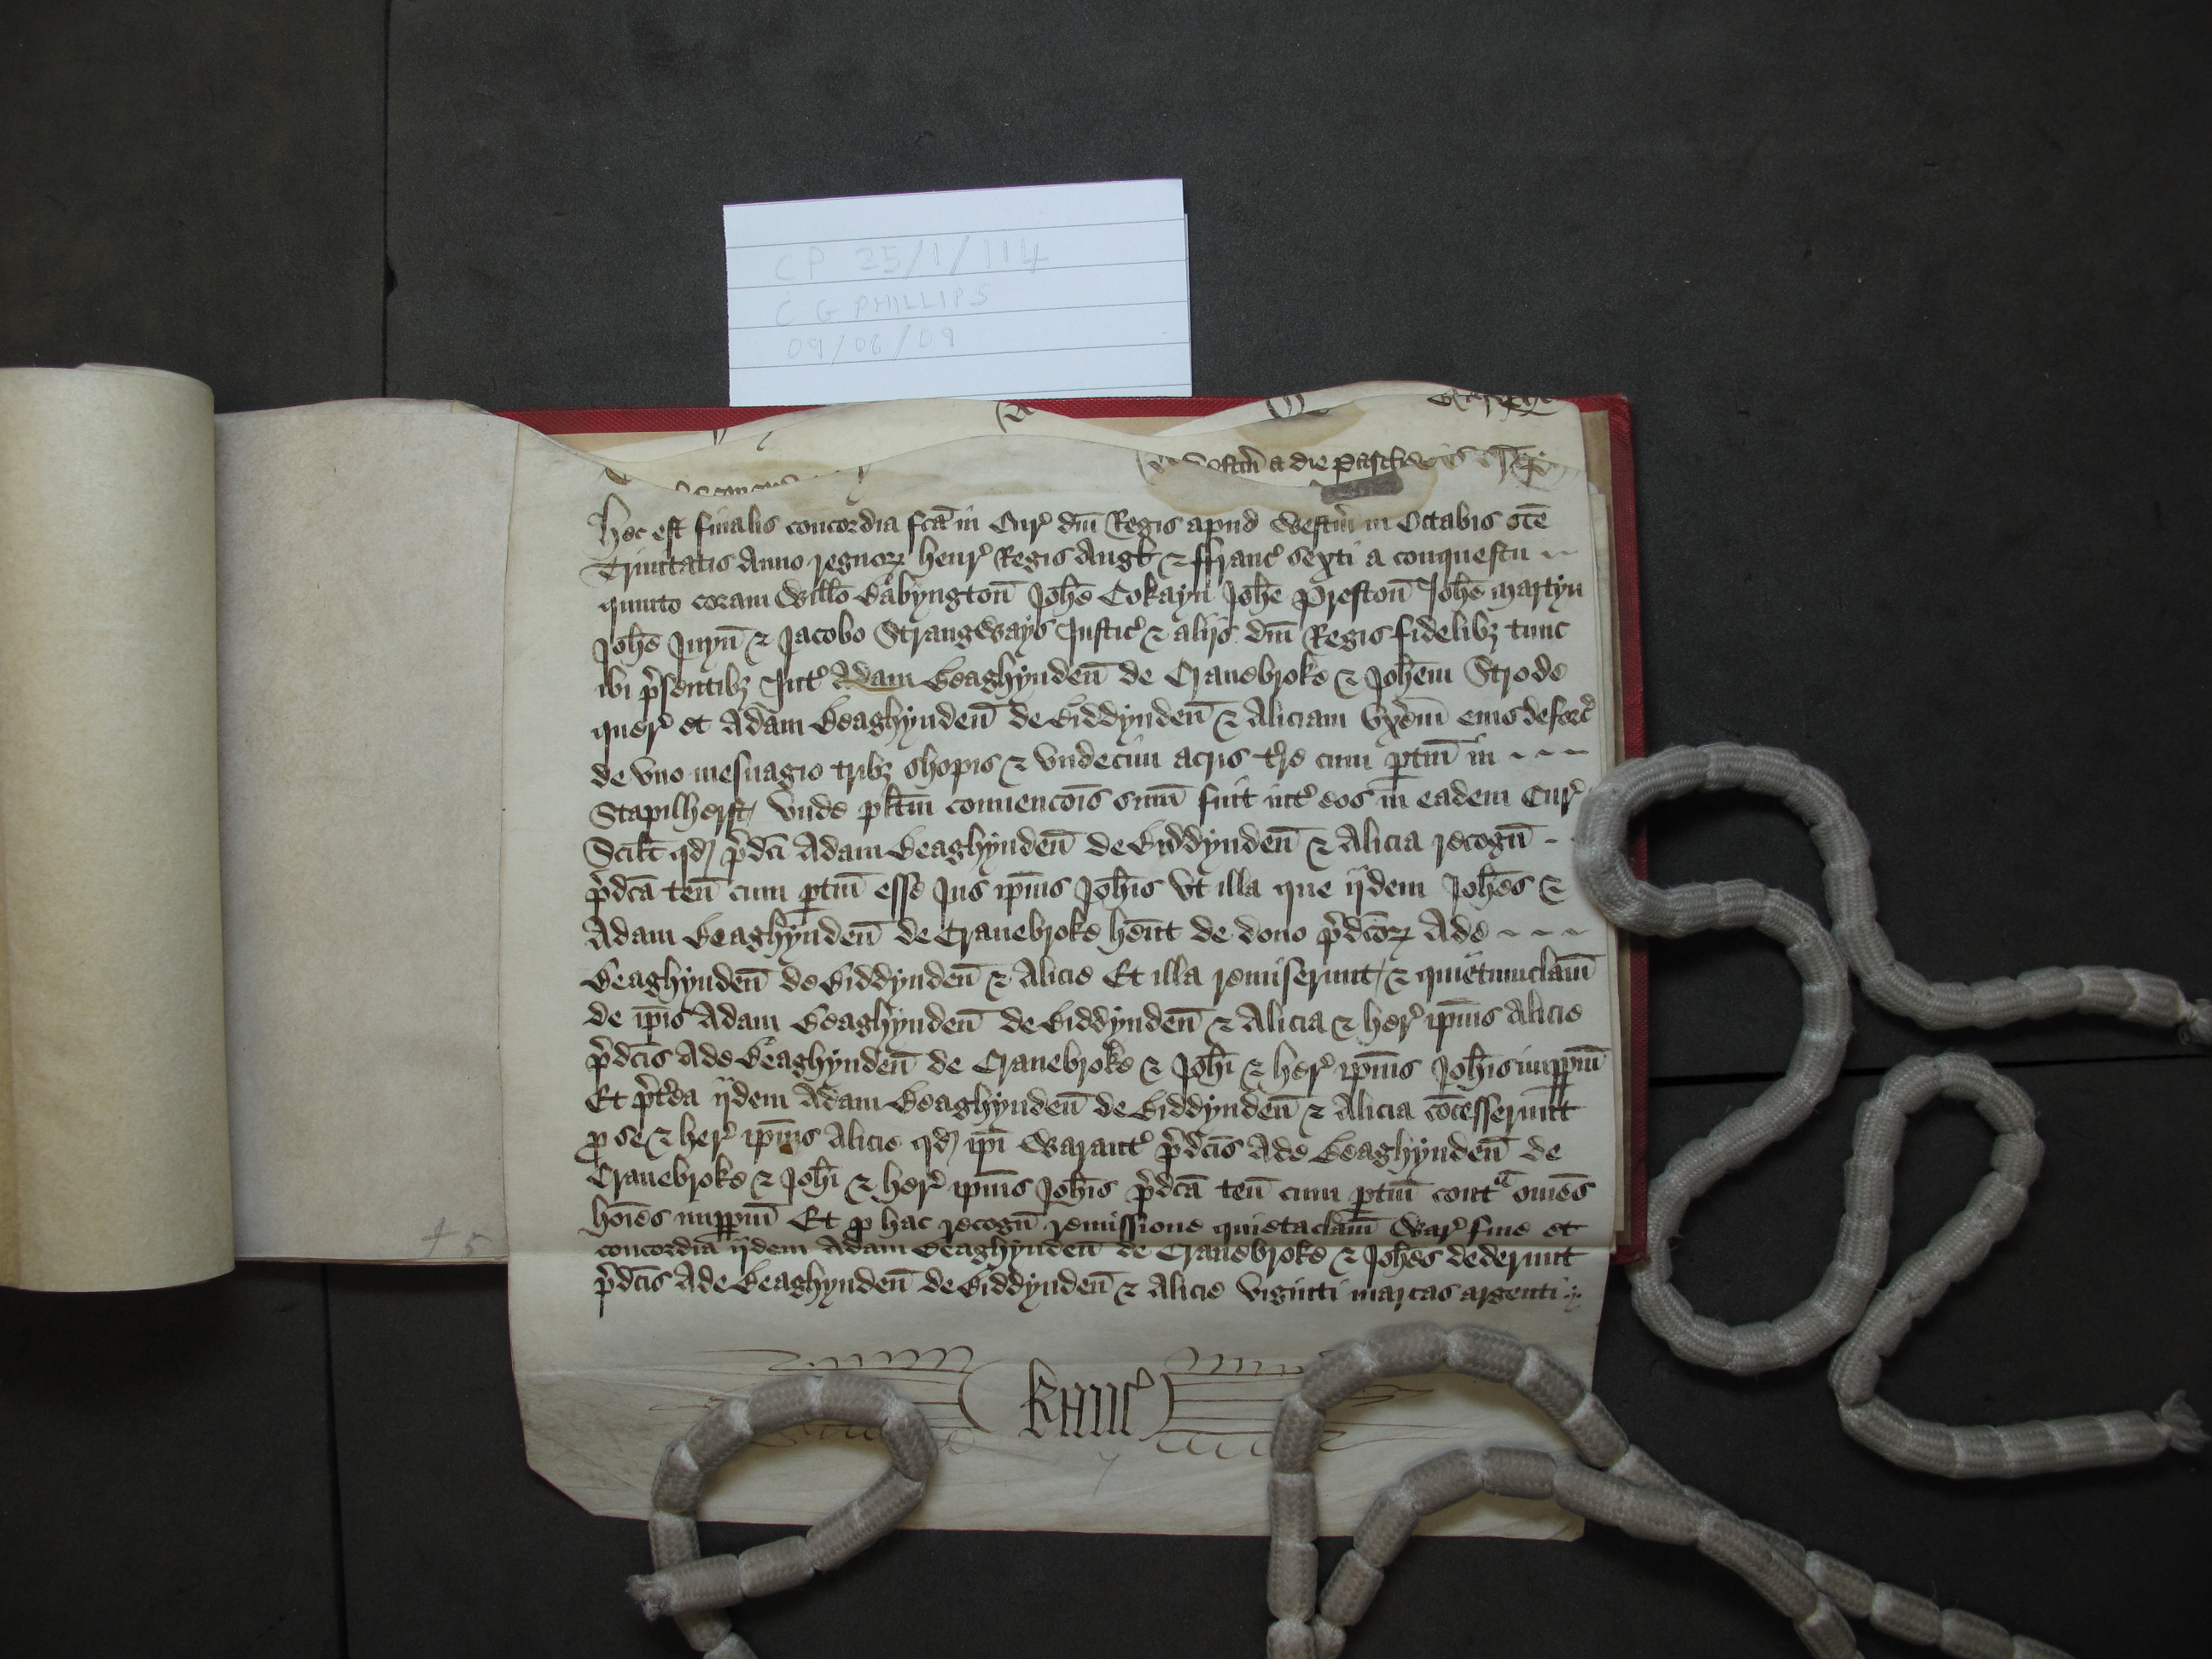 CP 25/1/114
C G PHILLIPS
09/06/09
a die Pasche
Hec est finalis concordia fc̄a in Cur̉ dn̄i Regis apud Westm̄ in Octabis sc̄e
Trinitatis Anno regnoꝝ Henr̉ Regis Angƚ ⁊ Ffranc̉ sexti a conquestu
quinto coram Witƚo Babyngton̄ Joħe Cokayn Joħe Preston̄ Joħe Martyn
Joħe Juyn̄ ⁊ Jacobo Strangways Justic̉ ⁊ alijs dn̄i Regis fidelibꝫ tunc
ibi p̉sentibꝫ Int̉ Adam Beaghynden̄ de Cranebroke ⁊ Joħem Strode
quer̉ et Adam Beaghynden̄ de Biddynden̄ ⁊ Aliciam Vxēm eius deforc̉
de vno mesuagio tribꝫ shopis ⁊ vndecim acris t̉re cum ptin̄ in ~ ~ ~
Stapilherst, vnde pƚitm conuencōis sum̄ fuit int̉ eos in eadem Cur̉
Sciƚt qd̛ p̉dc̄i Adam Beaghynden̄ de Biddynden̄ ⁊ Alicia recogn̄ -
p̉dc̄a ten̄ cum ptin̄ esse Jus ip̄ius Joħis Vt illa que ijdem Joħes ⁊
Adam Beaghynden̄ de Cranebroke hēnt de dono p̉dc̄oꝝ Ade ~ ~ ~
Beaghynden̄ de Biddynden̄ ⁊ Alicie Et illa remiserunt, ⁊ quietumclam̄
de ip̄is Adam Beaghynden̄ de Biddynden̄ ⁊ Alicia ⁊ her̉ ip̄ius Alicie
p̉dc̄is Ade Beaghynden̄ de Cranebroke ⁊ Joħi ⁊ her̉ ip̄ius Joħis imꝑpm̄
Et p̉t̉ea ijdem Adam Beaghynden̄ de Biddynden̄ ⁊ Alicia cōcesserunt
ꝓ se ⁊ her̉ ip̄ius Alicie qd̛ ip̄i Warant̉ p̉dc̄is Ade Beaghynden̄ de
Cranebroke ⁊ Joħi ⁊ her̉ ip̄ius Joħis p̉dc̄a ten̄ cum ptin̄ contᵃ om̄es
hoīes imꝑpm̄ Et ꝓ hac recogn̄ remissione quietaclam̄ War̉ fine et
concordia ijdem Adam Beaghynden̄ de Cranebroke ⁊ Joħes dederunt
p̉dc̄is Ade Beaghynden̄ de Biddynden̄ ⁊ Alicie viginti marcas argenti
Kanc̉
4 5
7